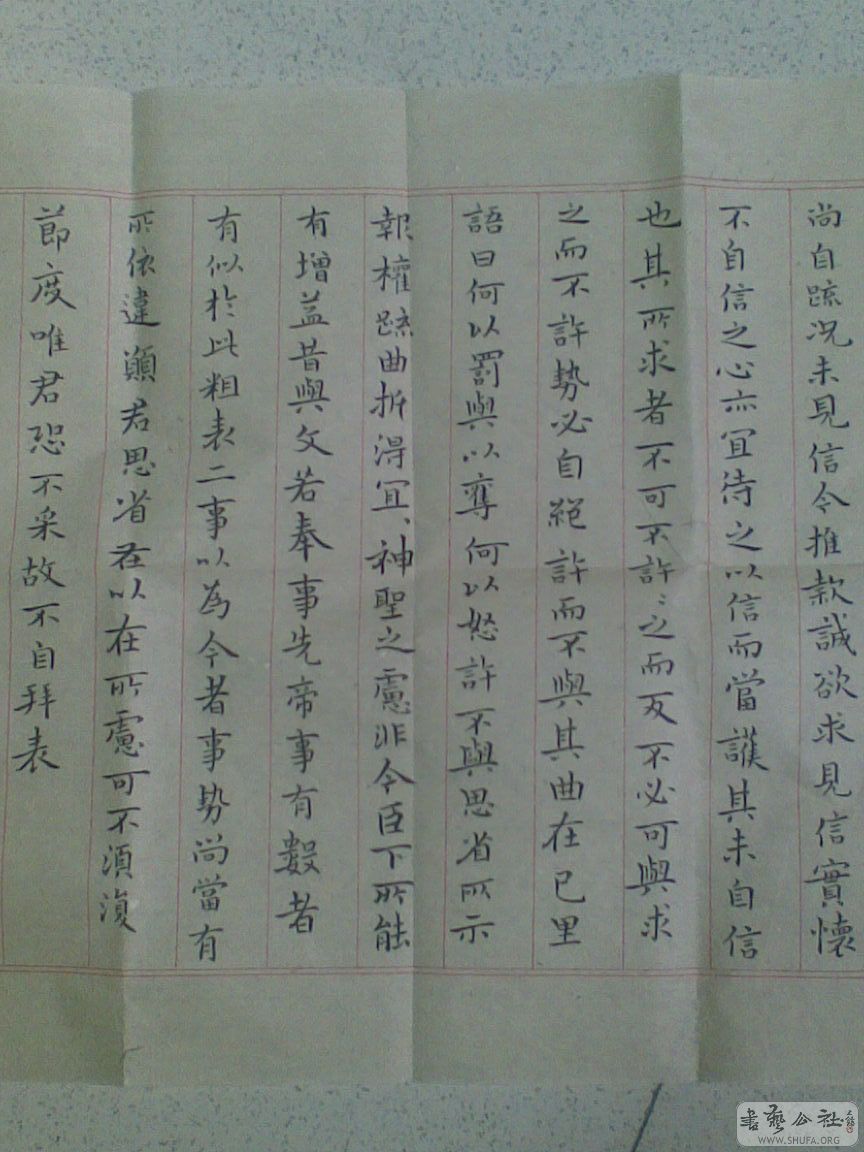 尚自疏况未見信今推款誠欲求見信實懷
不自信之心亦宜待之以信而當護其未自信
也其所求者不可不許許之而反不必可與求
之而不許勢必自絕許而不與其曲在己里
語曰何以罰與以奪何以怒許不與思省所示
報權疏曲折得宜神聖之慮非今臣下所能
有增益昔與文若奉事先帝事有數者
有似於此粗表二事以為今者事勢尚當有
所依違願君思省若以在所慮可不須復
節度唯君恐不采故不自拜表
書藝公社
WWW.SHUFA.ORG